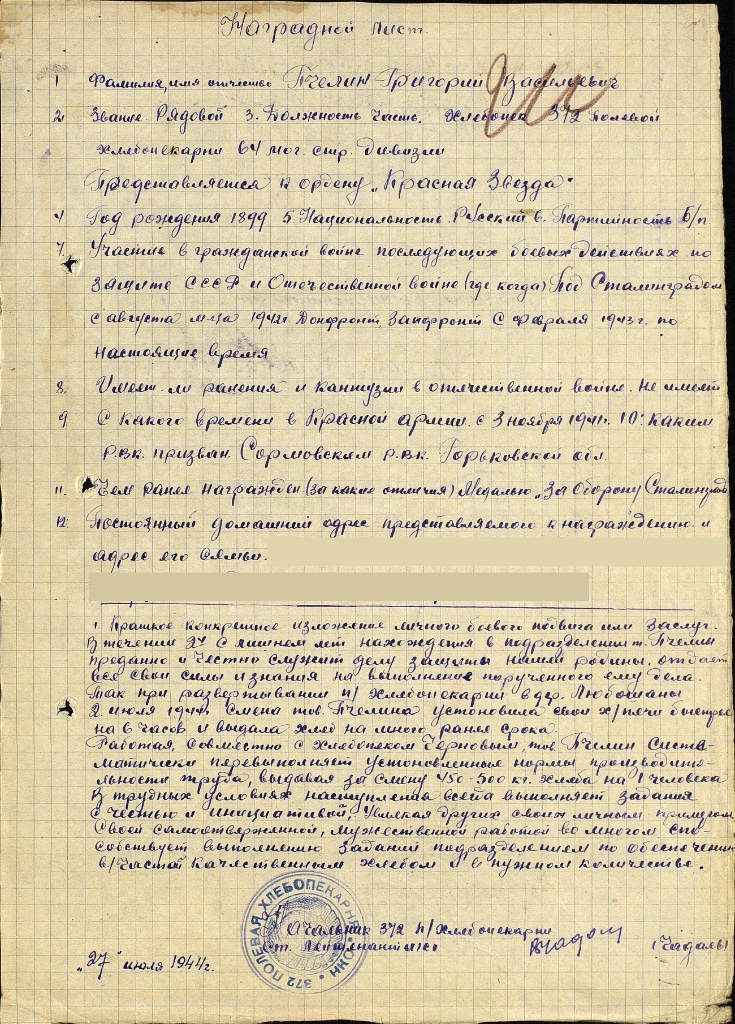 Наградной лист.
1 Фамилия, имя отчество Пчелин Григорий Васильевич
2. Звание Рядовой 3. Должность часть. Хлебопек 372 Полевой
хлебопекарни 64 мог. стр. дивизии
Представляется к ордену „Красная Звезда"
4 Год рождения 1899 5 Национальность Русский 6. Партийность Б/п
7. Участие в гражданской войне последующих боевых действиях по
защите СССР и Отечественной войне (где когда) Под Сталинградом
с августа м-ца 1942г. Донфронт, Запфронт с февраля 1943г. по
настоящие время
8. Имеет ли ранения и кантузии в отечественной войне. Не имеет
9 С какого времени в Красной армии с 3 ноября 1941г. 10: каким
Р.В.К. призван Сормовским Р.В.К. Горьковской обл.
11. Чем ранее награжден (за какие отличия) Медалью „За Оборону Сталинград
12. Постоянный домашний адрес представляемого к награждению и
адрес его семьи.
1. Краткое конкретное изложение личного боевого подвига или заслуг.
В течении 2х с лишнем лет нахождения в подразделении т. Пчелин
преданно и честно служит делу защиты нашей родины. отдает
все свои силы и знания на выполнение порученного ему дела.
Так при развертывании п/ хлебопекарни в дер. Любошаны
2 июля 1944г. Смена тов. Пчелина установила свои х/печи быстрее
на 6 часов и выдала хлеб на много ранее срока.
Работая, совместно с хлебопеком Черновым, тов. Пчелин систе-
матически перевыполняет установленные нормы производите-
льности труда, выдавая за смену 450-500 кг. хлеба на 1 человека
В трудных условиях наступления всегда выполняет задания
с честью и инициативой, увлекая других своим личным примером
Своей самоотверженной, мужественной работой во многом спо-
собствует выполнению заданий подразделением по обеспечению
в/частей качественным хлебом и в нужном количестве.
372 ПОЛЕВАЯ ХЛЕБОПЕКАРНЯ
Начальник 372 п/хлебопекарни
ст. лейтенант и/с
(Чадаль)
„27" июля 1944г.